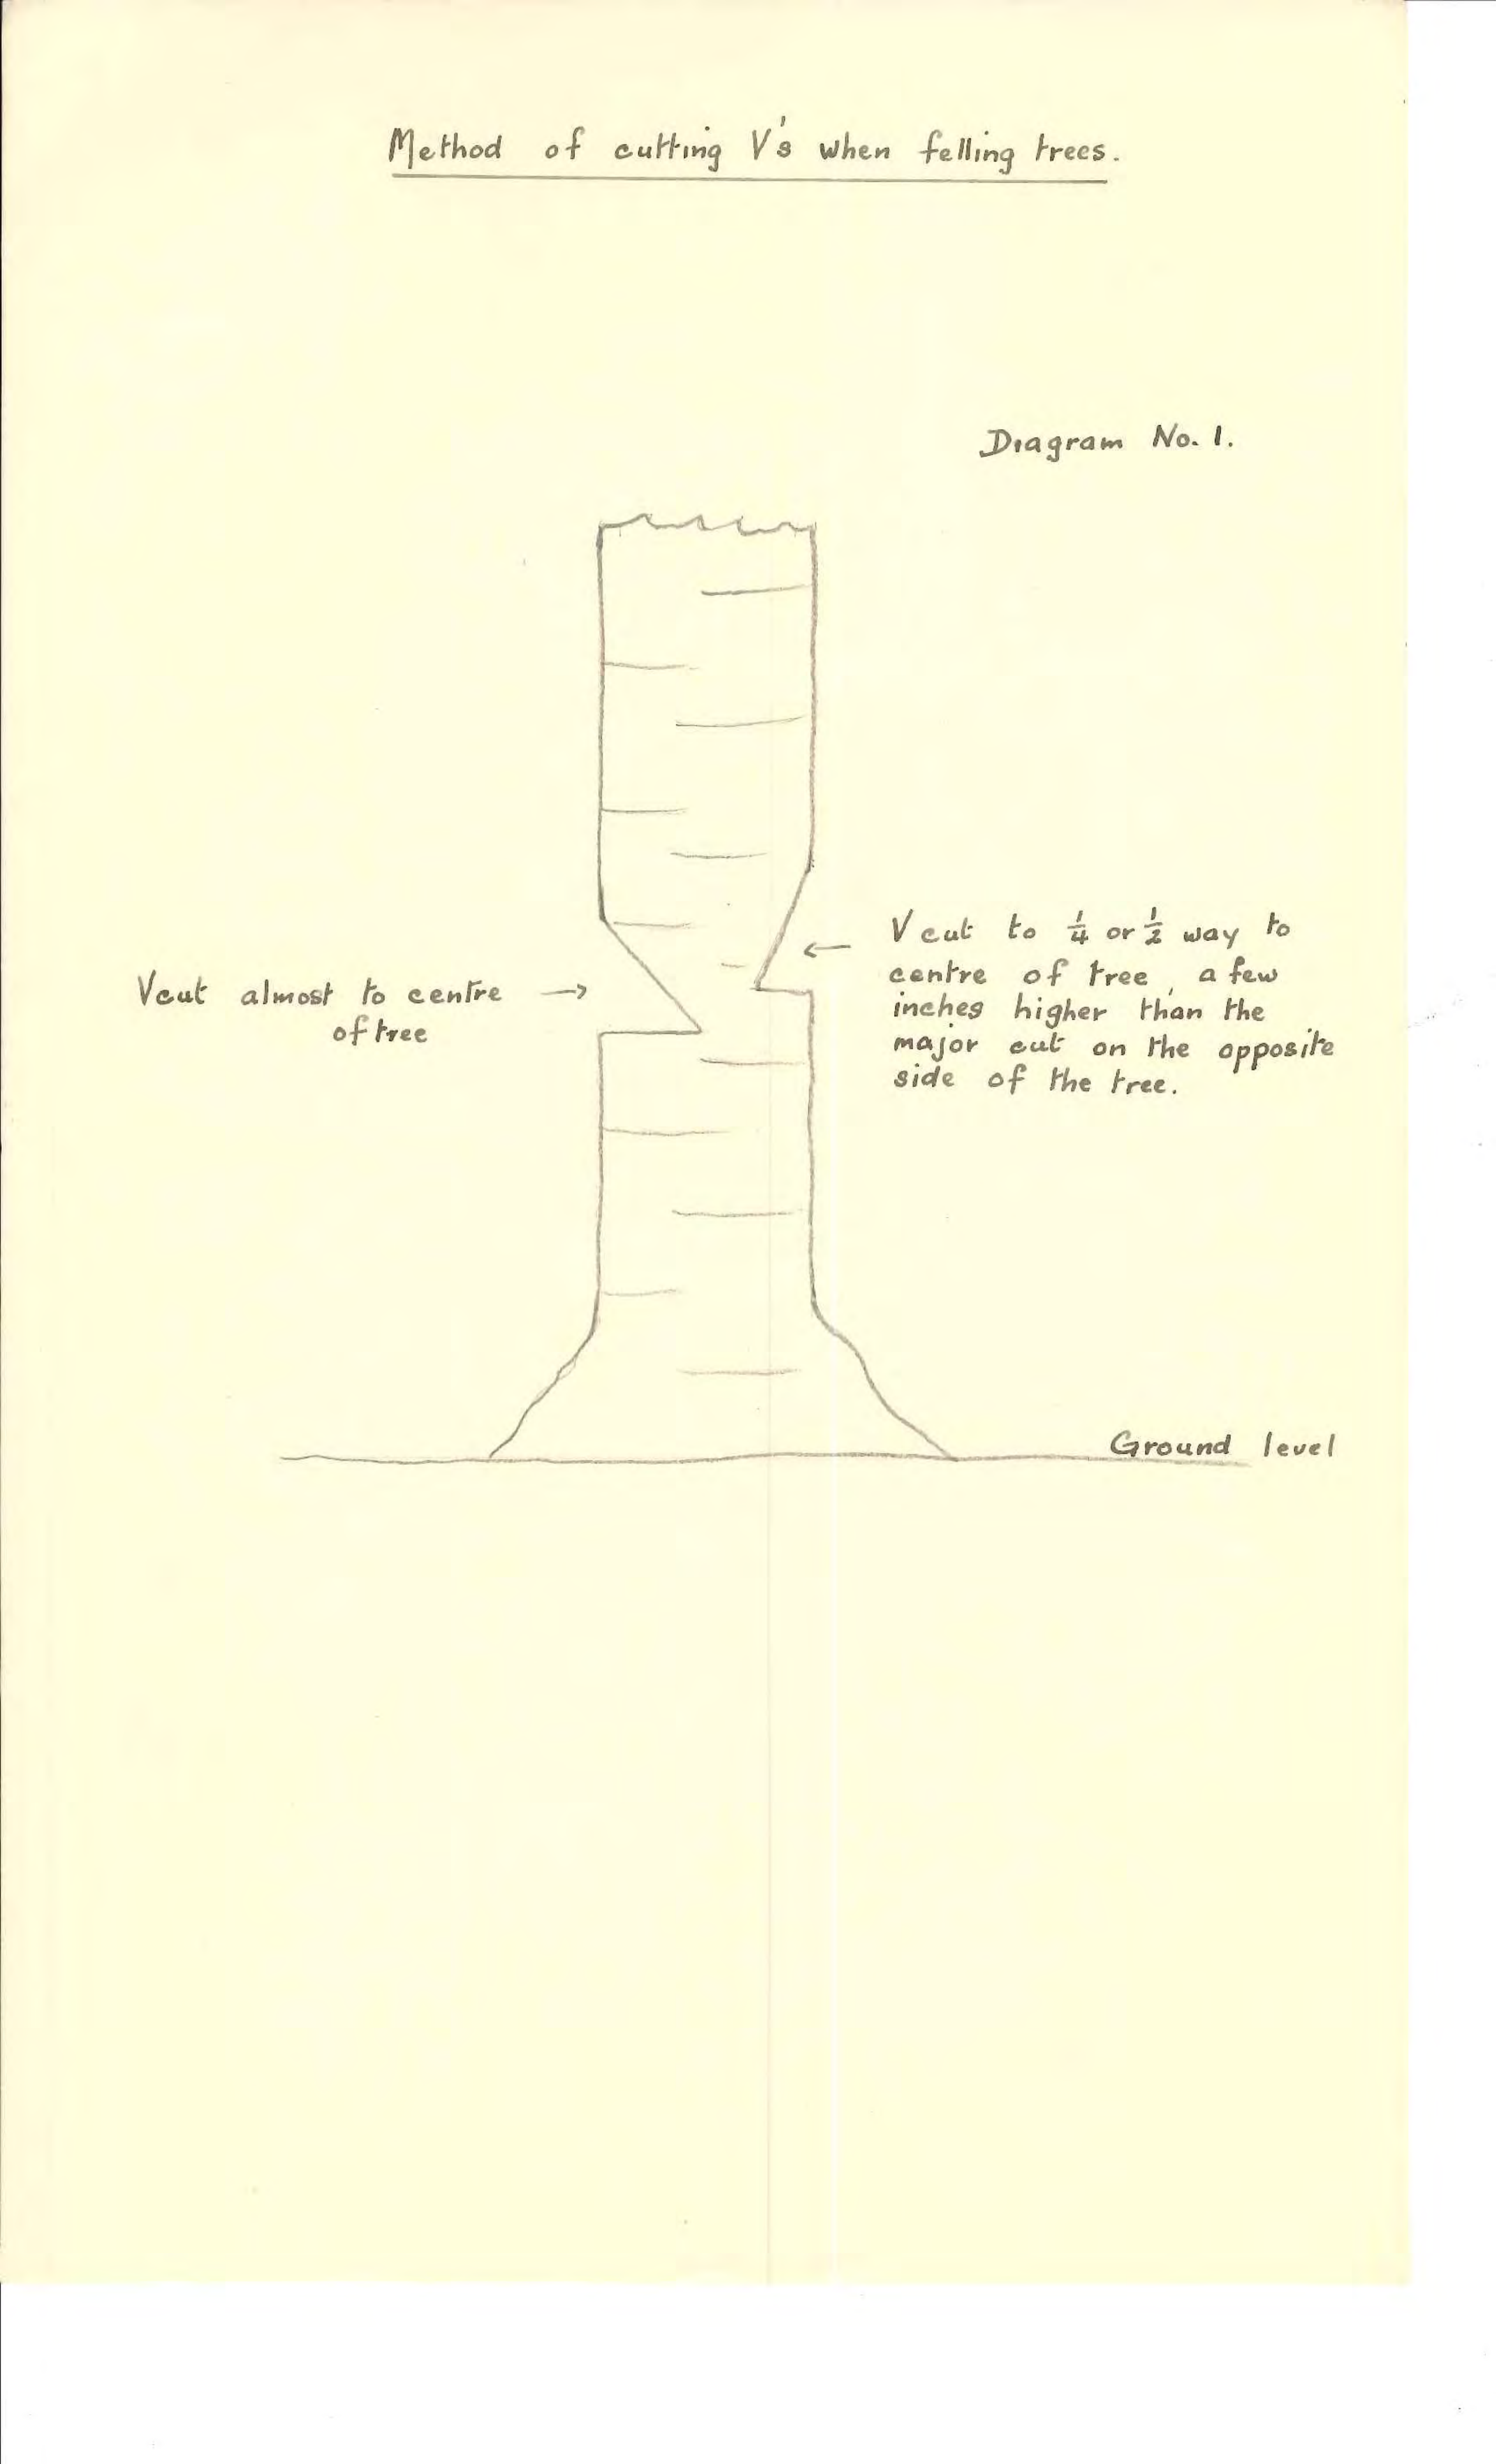 Method of cutting V's when felling trees.
Diagram No. 1.
V cut to 1/4 or 1/2 way to
centre of tree, a few
inches higher than the
major cut on the opposite
side of the tree.
V cut almost to centre
of tree
Ground level